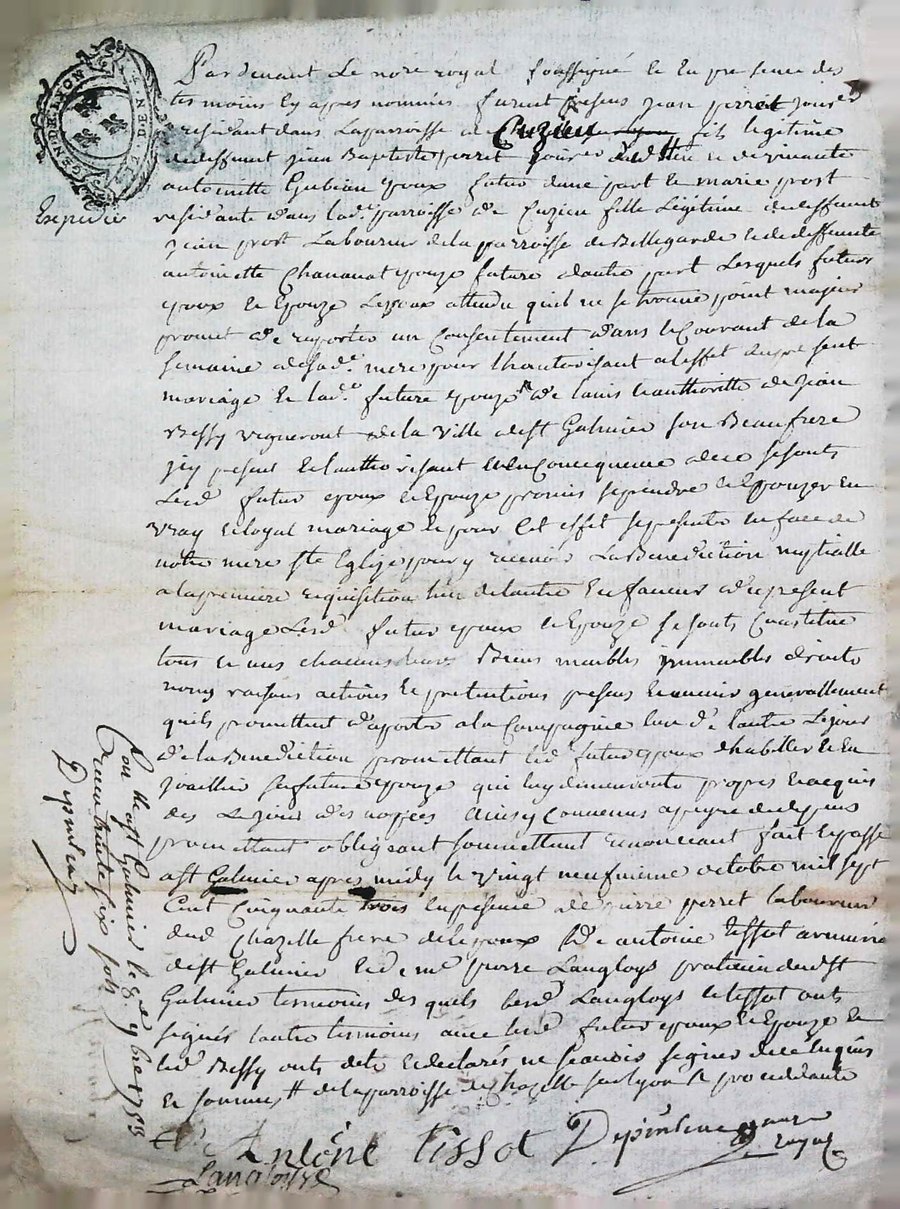 GEN. DE LYON
Pardevant Le no.re royal soussigné et En presence des
tesmoins cy apres nommés furent presens jean perret jour.er
residant dans La parroisse de Cuzieu fils legitime
de deffunt jean Baptiste perret et de vivante
antoinette Gubian Epoux futur dune part et marie prost
Expedié
residante dans lad.e parroisse de Cuzieu fille Legitime de deffunt
jean prost Laboureur de la parroisse de Bellegarde et de deffunte
antoinette Chananat Epouze future dautre part Lesquels futurs
Epoux et Epouze Lepoux attendu quil ne se trouve point majeur
promet de raporter un Consentement dans le Courant de la
semaine de sad.e mere pour lhautorisant a leffet du present
mariage et lad.e future Epouze de lavis et authorité de jean
Bessy vigneront de la ville de st Galmier son Beaufrere
jcy present et lauthorisant et En Concequence de ce se sont
Lesd futur Epoux et Epouze promis se prendre et Epouzer En
vray et loyal mariage et pour Cet effet se presenter En face de
notre mere ste Eglize pour y recevoir La Benediction nuptialle
a la premiere requisition lun de lautre En faveur du present
mariage Lesd futur Epoux et Epouze se sonts Constitué
tous et uns chacuns leurs Biens meubles jmmeubles droits
noms raisons actions et pretentions presens et avenir generallement
quils promettent daporter a la Compagnie lun de lautre Le jour
de la Benediction promettant led futur Epoux dhabiller et En
joailler sa future Epouze qui luy demeureront propres et acquis
des Le jour des nopces Ainsy Convenus a peyne de depens
promettant obligeant soumettant renonceant fait et passé
a st Galmier apres midy le vingt neufvieme octobre mil sept
Cent Cinquante trois En presence de pierre perret laboureur
dud Chazelle frere de lepoux de antoine Tissot armurier
de st Galmier et de me pierre Langloys praticien dud st
Galmier tesmoins des quels lesd Langloys et tissot onts
signés lautre tesmoins avec lesd futur Epoux et Epouze et
led Bessy onts dit et declarés ne scavoir signer de ce Enquis
et sommés # de la parroisse de chazelle sur lyon
Antoine tissot
Langloys
royal
Con.lle a st Galmier le 9bre 1753
Receu trente six sols